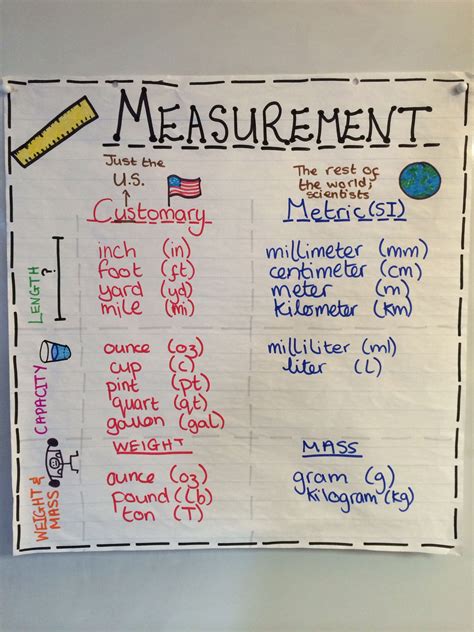 MEASUREMENT
Just the
U.S.
The rest of
the world;
scientists
Customary
Metric (SI)
LENGTH ?
inch (in)
foot (ft)
yard (yd)
mile (mi)
millimeter (mm)
centimeter (cm)
meter (m)
kilometer (km)
CAPACITY
ounce (oz)
cup (c)
pint (pt)
quart (qt)
gallon (gal)
milliliter (ml)
liter (L)
WEIGHT &
MASS
WEIGHT
ounce (oz)
pound (lb)
ton (T)
MASS
gram (g)
kilogram (kg)